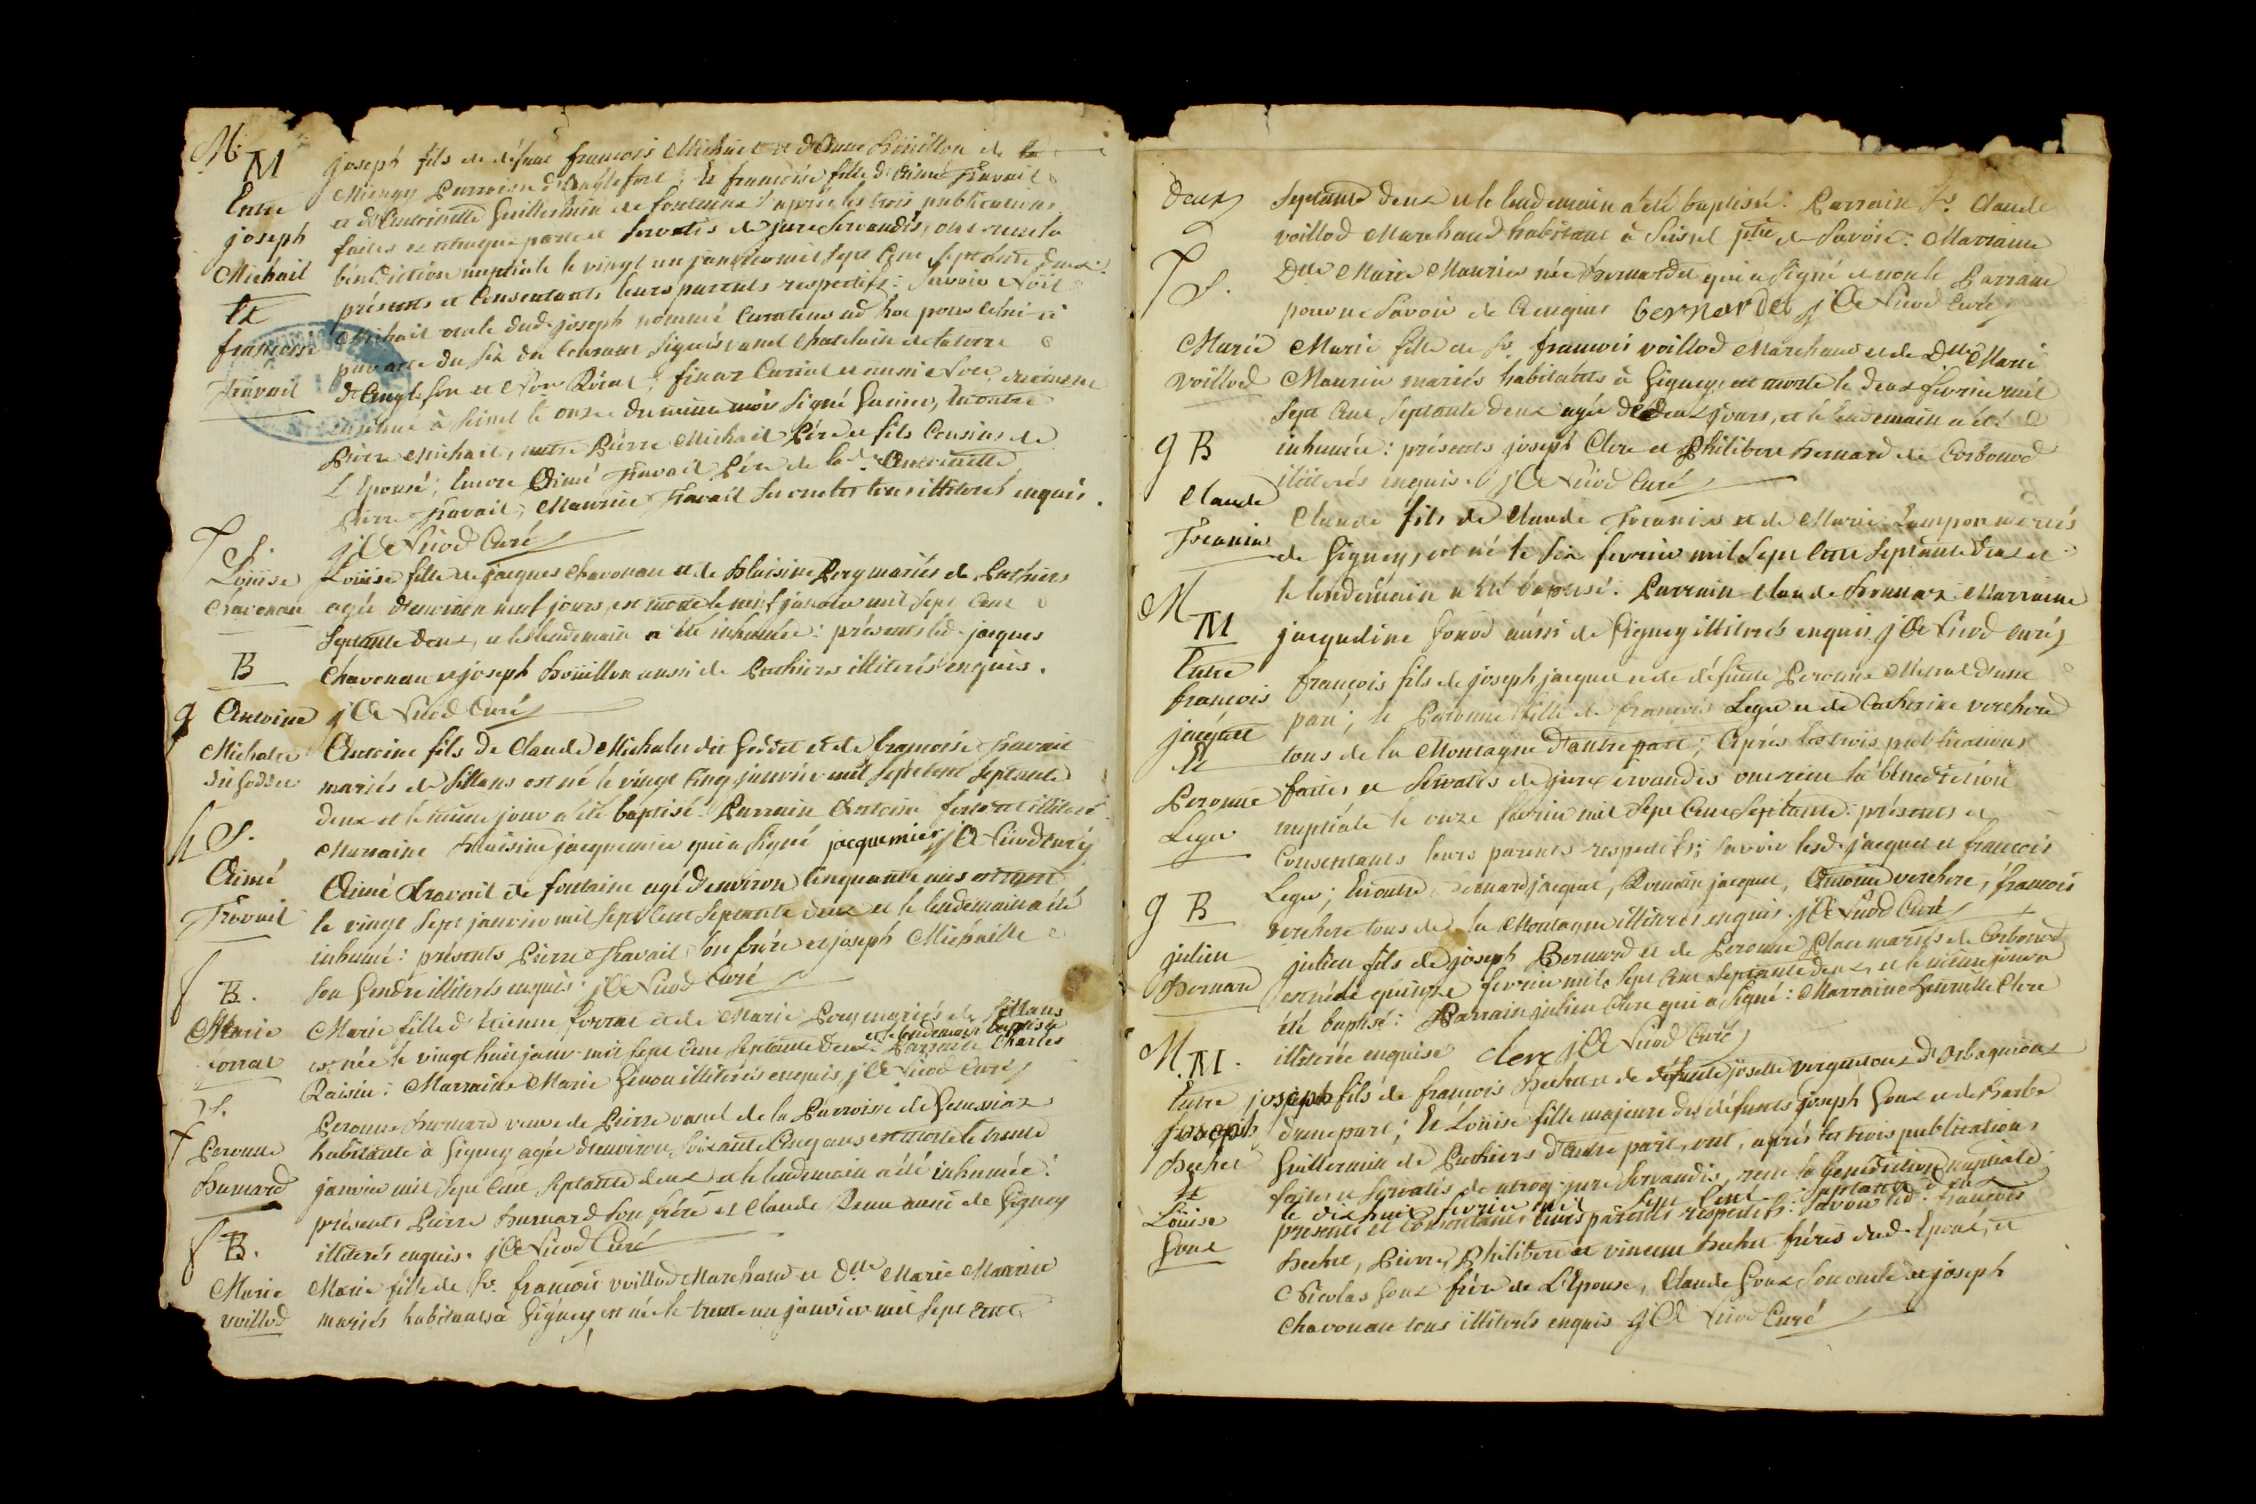 M.
M
Entre
joseph
Michail
Et
francoise
Travail
joseph fils de défunt francois Michail et d'Anne Boüillon de
Mieugy Parroisse d'Anglefort ; Et francoise fille d'Aimé Travail
et d'Antoinette Guillermin de fontaine : après les trois publications
faites et servatis de jure servandis, ont recu la
bénédiction nuptiale le vingt un janvier mil sept Cent septante deux :
présents et Consentants leurs parents respectifs : savoir
Michail oncle dud. joseph nommé Curateur ad hoc pour
par acte du six du Courant signé vanel Chatelain de la terre
d'Anglefort
à Seissel le onze du même mois signé
Pierre Michail, autre Pierre Michail Père et fils Cousins de
L'Epousé ; Encore Aimé Travail Père de la d. Antoinette
Pierre Travail, Maurice Travail ses oncles tous illiterés enquis.
jCl Nicod Curé
S.
Loüise
Chavonau
Loüise fille de jacques Chavonau et de Blaisine Peray mariés de Puthiers
agée d'environ neuf jours est morte le neuf janvier mil sept Cent
septante deux, et le lendemain a été inhumée : présents led. jacques
Chavonau et joseph Boüillon aussi de Puthiers illiterés enquis.
jCl Nicod Curé
B
g Antoine
Michalet
dit Goddet
Antoine fils de Claude Michalet dit Goddet et de francoise Travail
mariés de Sillans est né le vingt Cinq janvier mil sept Cent septante
deux et le même jour a été baptisé : Parrain Antoine forrat illiteré
Marraine Blaisine jacquemier qui a signé jacquemier jCl Nicod Curé
S.
Aimé
Travail
Aimé Travail de fontaine agé d'environ Cinquante ans est mort
le vingt sept janvier mil sept Cent septante deux et le lendemain a été
inhumé : présents Pierre Travail son frère et joseph Michaille
son Gendre illiterés enquis : jCl Nicod Curé
f B.
Marie
forrat
Marie fille d'Etienne forrat et de Marie Peray mariés de Sillans
et le lendemain baptisée
est née le vingt huit janv. mil sept Cent septante deux : Parrain Charles
Raisin : Marraine Marie Genou illiterés enquis jCl Nicod Curé
S.
Peronne
Burnard
Peronne Burnard veuve de Pierre vanel de la Parroisse de Genissiaz
habitante à Gignez agée d'environ soixante Cinq ans est morte le trente
janvier mil sept Cent septante deux et le lendemain a été inhumée :
présents Pierre Burnard son frère et Claude Rena aussi de Gignez
illiterés enquis. jCl Nicod Curé
f B.
Marie
voillod
Marie fille de Sr. francois voillod Marchand et Dlle Marie Maurier
mariés habitants à Gignez est née le trente un janvier mil sept Cent
Deux
septante deux et le lendemain a été baptisée : Parrain Sr. Claude
voillod Marchand habitant à Seissel ptie de Savoie : Marraine
Dlle Marie Maurier née Bernardet qui a signé et non le Parrain
pour ne savoir de Ce enquis bernardet jCl Nicod Curé
S.
Marie
voillod
Marie fille de Sr. francois voillod Marchand et de Dlle Marie
Maurier mariés habitants à Gignez est morte le deux fevrier mil
sept Cent septante deux agée de deux jours, et le lendemain a été
inhumée : présents joseph Clerc et Philibert Bernard de Corbonod
illiterés enquis. jCl Nicod Curé
g B
Claude
Troanin
Claude fils de Claude Troanin et de Marie Lampon mariés
de Gignez, est né le six fevrier mil sept Cent septante deux et
le lendemain a été baptisé : Parrain Claude Marraine
jacqueline Gonod aussi de Gignez illiterés enquis jCl Nicod Curé
M
M
Entre
francois
jacquet
Et
Peronne
Leger
francois fils de joseph jacquet et de défunte Peronne d'une
part ; et Peronne fille de francois Leger et de Catherine verchere
tous de la Montagne d'autre part ; Après les trois publications
faites et servatis de jure servandis ont reçu la bénédiction
nuptiale le onze fevrier mil sept Cent septante : présents et
Consentants leurs parents respectifs ; savoir lesd. jacquet et francois
Leger ; Et outre Bernard jacquet, Romain jacquet, Antoine verchere, francois
verchere tous de la Montagne illiterés enquis. jCl Nicod Curé
g B
julien
Bernard
julien fils de joseph Bernard et de Peronne Place mariés de Corbonod
est né le quinze fevrier mil sept Cent septante deux, et le même jour a
été baptisé : Parrain julien Clerc qui a signé : Marraine Henriette Clerc
illiterée enquise clerc jCl Nicod Curé
M. M.
Entre
joseph
Bechet
Et
Loüise
Goux
joseph fils de francois Bechet et de défunte d'Orbagnoux
d'une part ; Et Loüise fille majeure des défunts joseph Goux et de Barbe
Guillermin de Puthiers d'autre part, ont, après les trois publications
faites et servatis de utroq. jure servandis, recu la bénédiction nuptiale
le dix huit fevrier mil sept Cent septante deux
présents et Consentants leurs parents respectifs : savoir led. francois
Bechet, Pierre, Philibert et vincent Bechet frères dud. Epoux, et
Nicolas Goux frère de L'Epouse, Claude Goux son oncle et joseph
Chavonau tous illiterés enquis jCl Nicod Curé